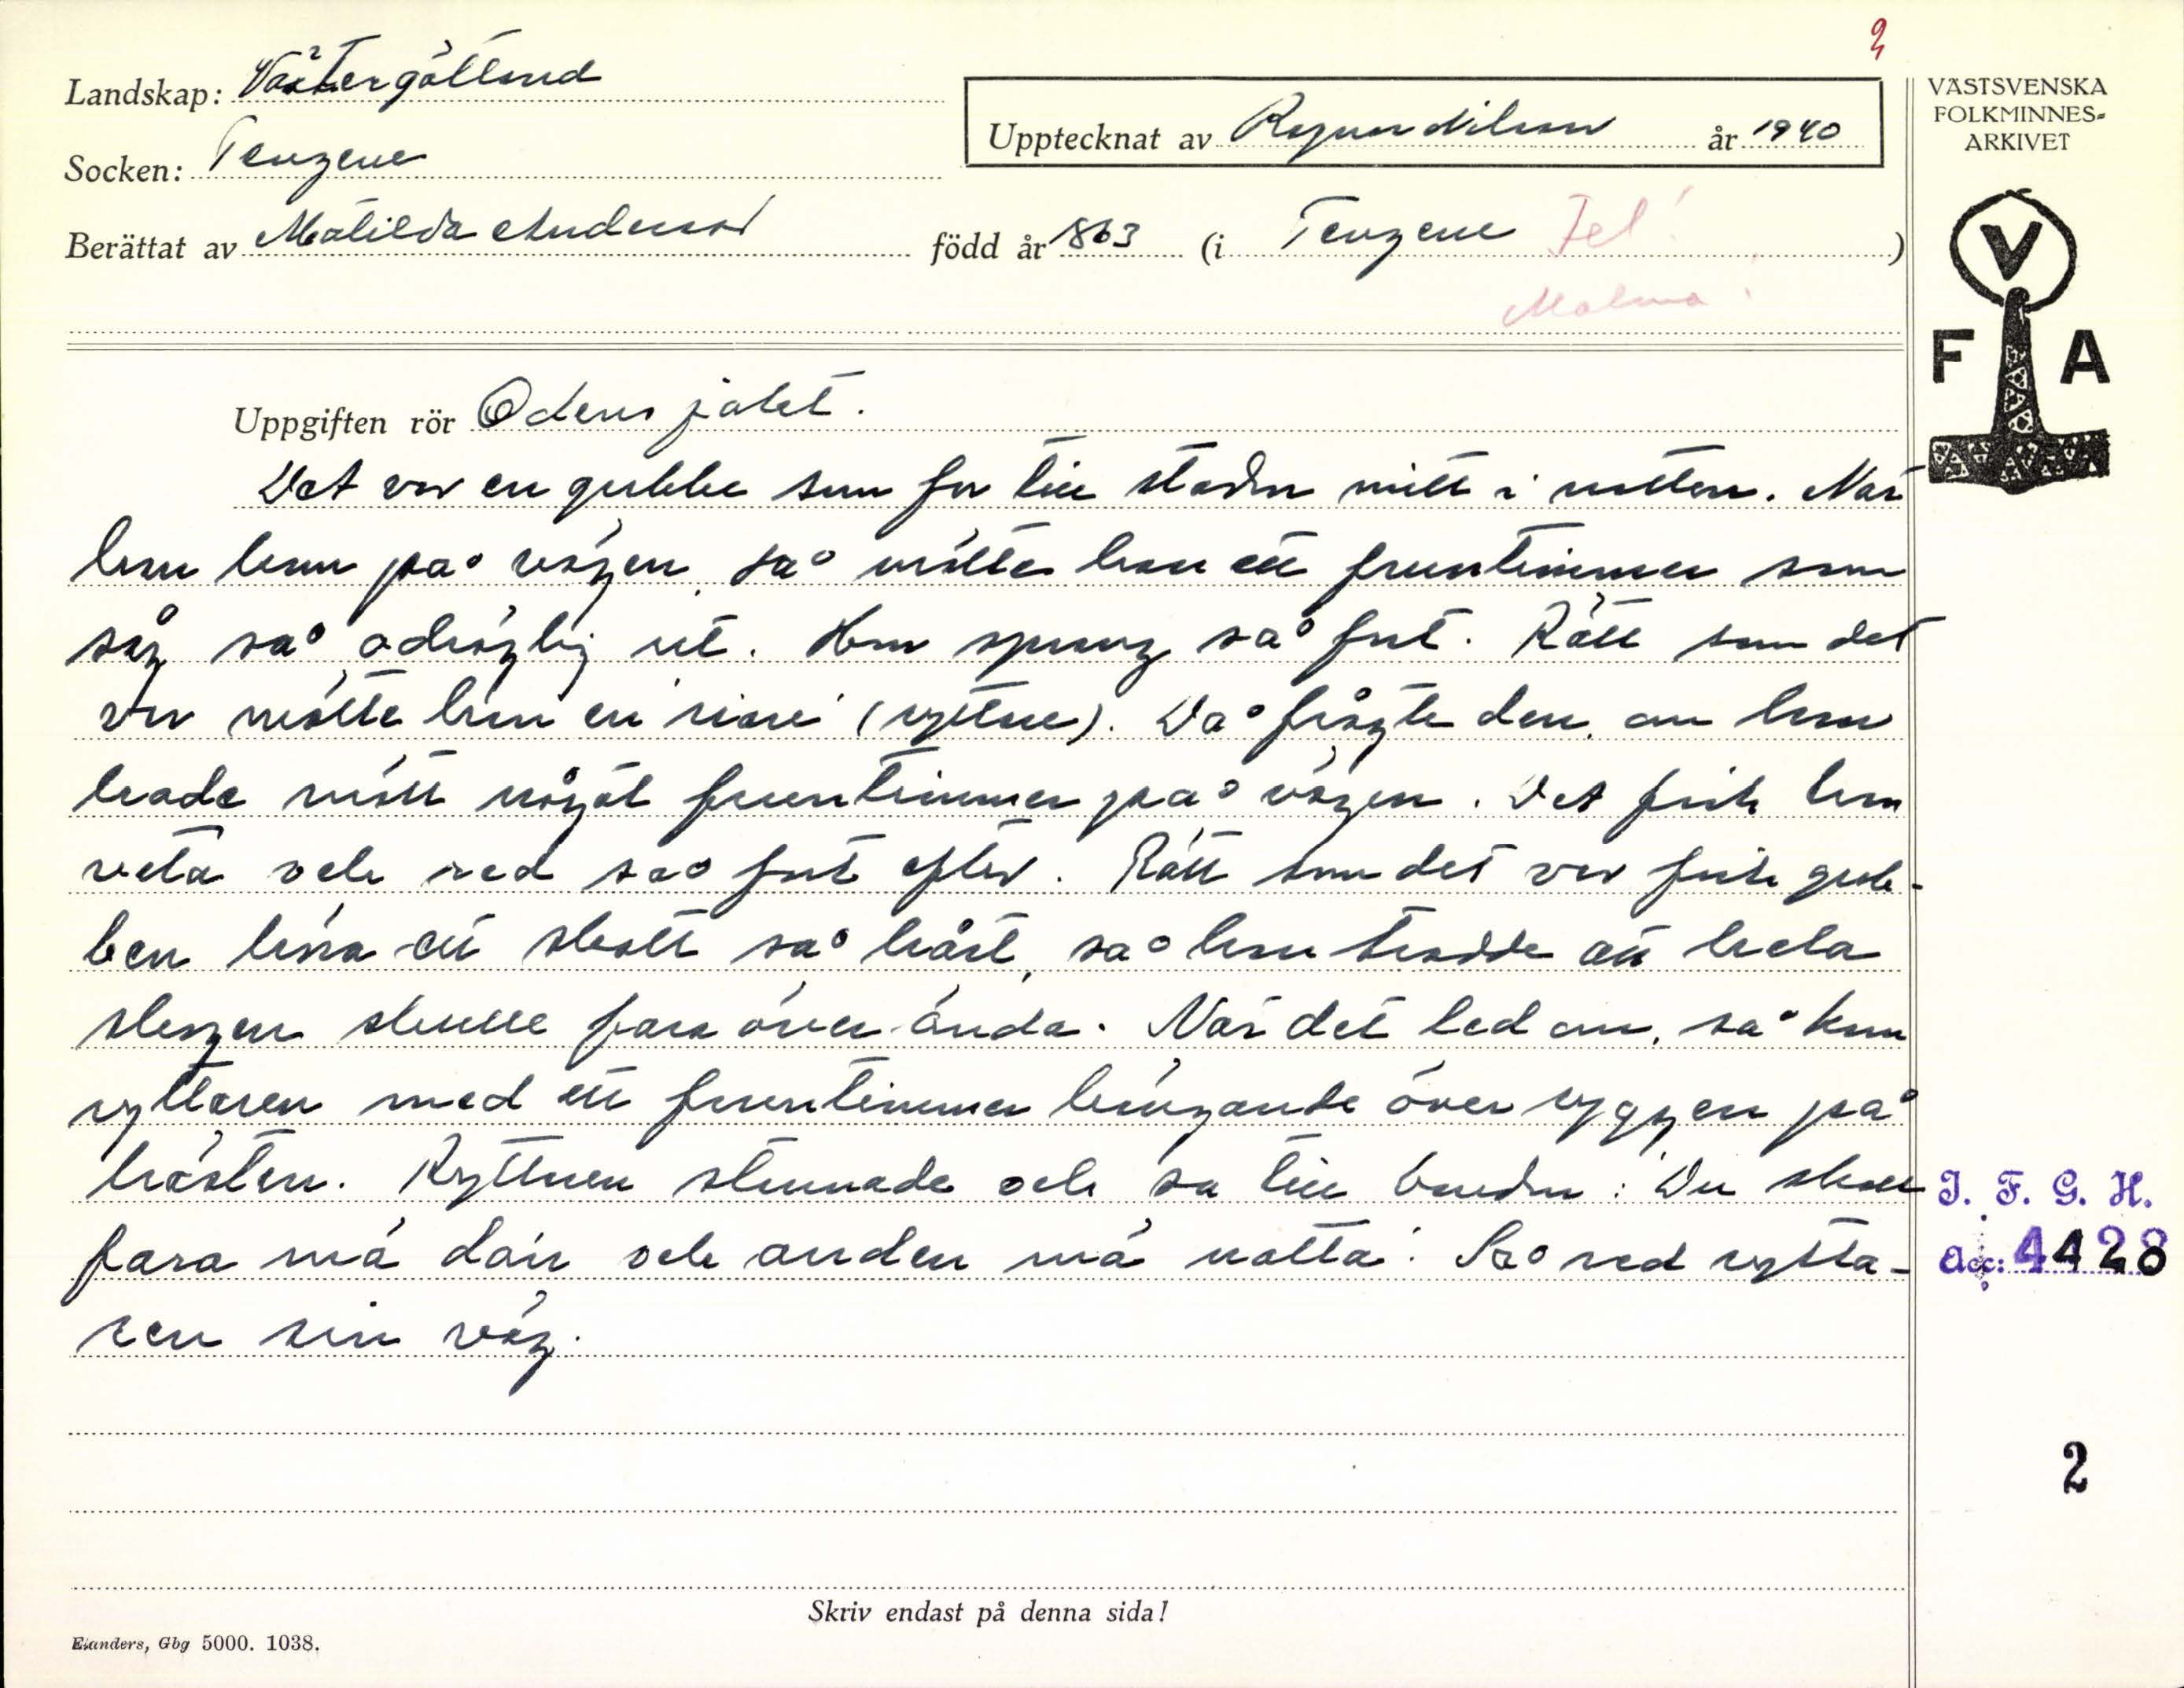 2
Landskap: Västergötland
Upptecknat av Ragnar Nilsson år 1940
Socken: Tengene
Berättat av Matilda Andersson född år 1863 (i Tengene Fel! )
Malma!
VÄSTSVENSKA
FOLKMINNES-
ARKIVET
V
F A
Uppgiften rör Odens jakt.
Det var en gubbe som for till staden mitt i natten. När
han kom på vägen, så mötte han ett fruntimmer som
såg så odräglig ut. Hon sprang så fort. Rätt som det
var mötte han en (ryttare). Då frågte den, om han
hade mött något fruntimmer på vägen. Det fick han
veta och red så fort efter. Rätt som det var fick gub-
ben höra ett skott så hårt, så han trodde att hela
skogen skulle fara över ända. När det led om, så kom
ryttaren med ett fruntimmer hängande över ryggen på
hästen. Ryttaren stannade och sa till bonden: Du skall
fara mä dan och anden mä natta. Så red rytta-
ren sin väg.
I. F. G. H.
Acc: 4428
2
Skriv endast på denna sida!
Elanders, Gbg 5000. 1038.